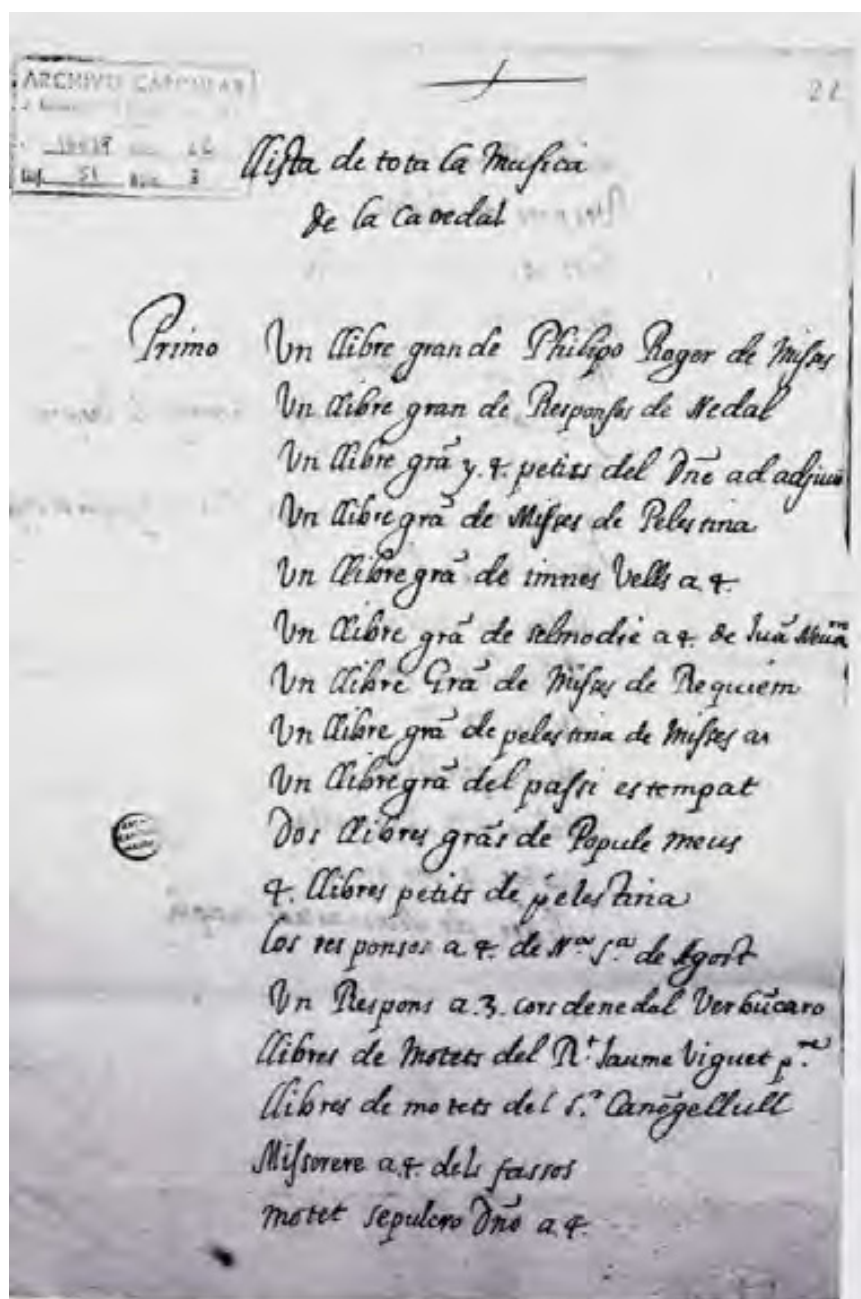 ARCHIVO CAPITULAR
22
llista de tota la Musica
de la Catedal
Primo Un llibre gran de Philipo Roger de Misses
Un llibre gran de Responsos de Nedal
Un llibre grã y 4. petits del Dñe ad adjuvã
Un llibre grã de Misses de Pelestrina
Un llibre grã de imnes Vells a 4.
Un llibre grã de selmodie a 4. de Juã
Un llibre Grã de Misses de Requiem
Un llibre grã de pelestrina de Misses
Un llibre grã del passi estempat
Dos llibres grãs de Popule meus
4. llibres petits de pelestrina
los responsos a 4. de Nra Sra de Agost
Un Respons a 3. cors de nedal Verbũ caro
llibres de Motets del Rt. Jaume Viguet pre
llibres de motets del Sr. Canõge llull
Miserere a 4. dels fassos
motet sepulcro Dño a 4.